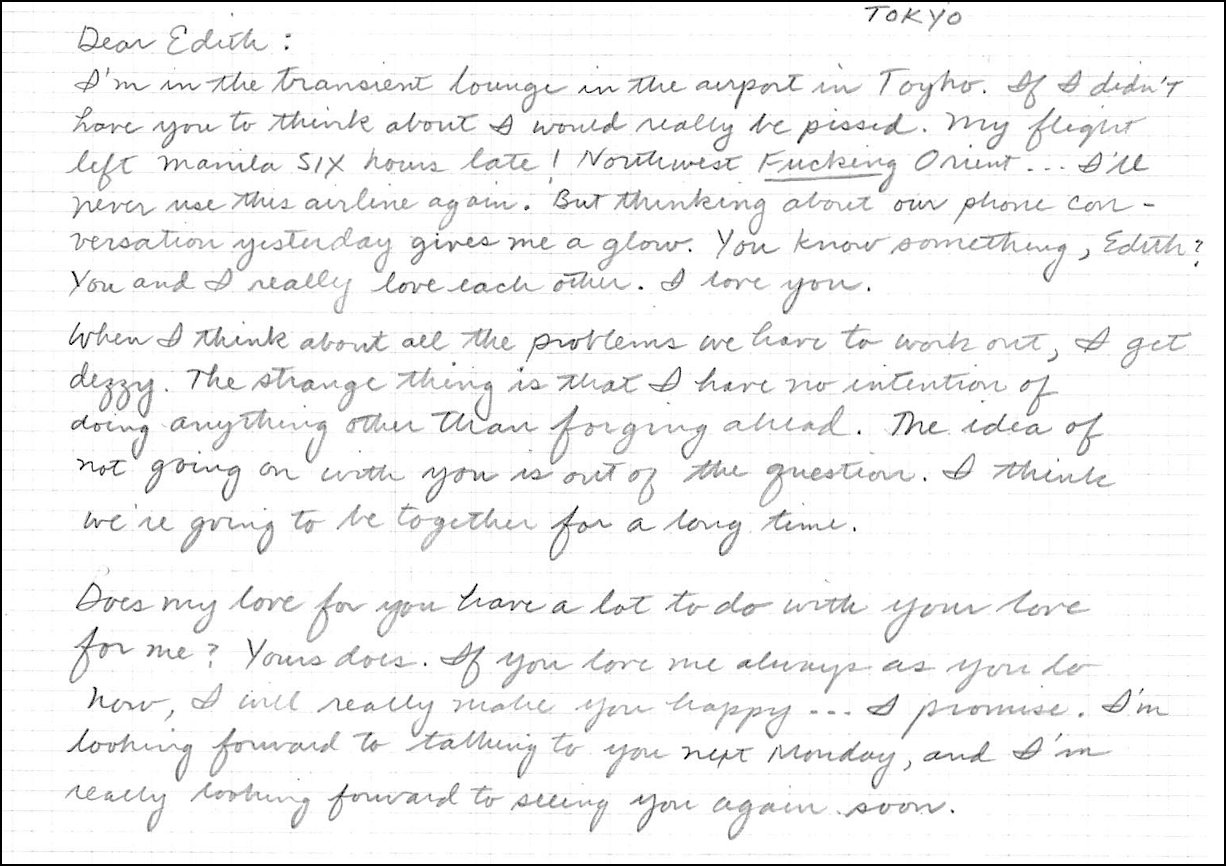 TOKYO
Dear Edith :
I'm in the transient lounge in the airport in Toyko. If I didn't
have you to think about I would really be pissed. My flight
left Manila SIX hours late! Northwest Fucking Orient... I'll
never use this airline again. But thinking about our phone con-
versation yesterday gives me a glow. You know something, Edith?
You and I really love each other. I love you.
When I think about all the problems we have to work out, I get
dizzy. The strange thing is that I have no intention of
doing anything other than forging ahead. The idea of
not going on with you is out of the question. I think
we're going to be together for a long time.
Does my love for you have a lot to do with your love
for me? Yours does. If you love me always as you do
now, I will really make you happy... I promise. I'm
looking forward to talking to you next Monday, and I'm
really looking forward to seeing you again soon.